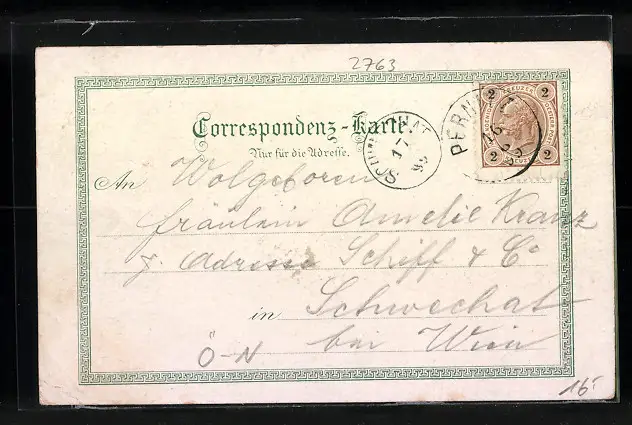 2763
Correspondenz-Karte.
Nur für die Adresse.
An Wolgeboren
fräulein Amelie Kranz
Adresse Schiff & Co
in Schwechat
bei Wien
Ö-N
16.-
2 KREUZER 2
2 2
PERN
16
SCHWECHAT
17